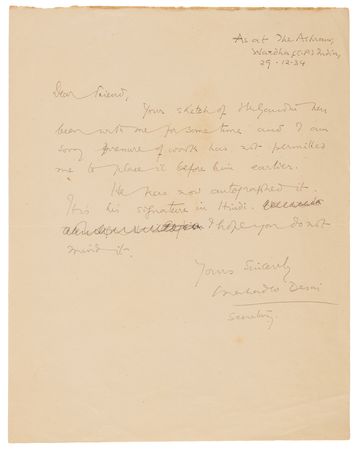 As at The Ashram,
Wardha (C.P.) India,
29-12-34
Dear Friend,
Your sketch of Mr Gandhi has
been with me for some time and I am
sorry pressure of work has not permitted
me to place it before him earlier.
He has now autographed it.
It is his signature in Hindi.
I hope you do not
mind it.
Yours Sincerely
Mahadev Desai
Secretary.